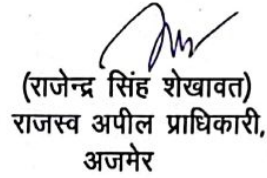 (राजेन्द्र सिंह शेखावत)
राजस्व अपील प्राधिकारी,
अजमेर